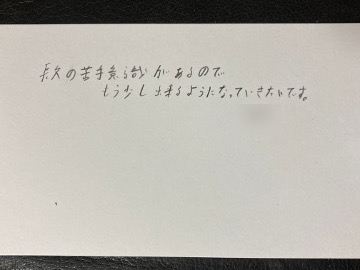 長文の苦手意識があるので
もう少し出来るようになっていきたいです。